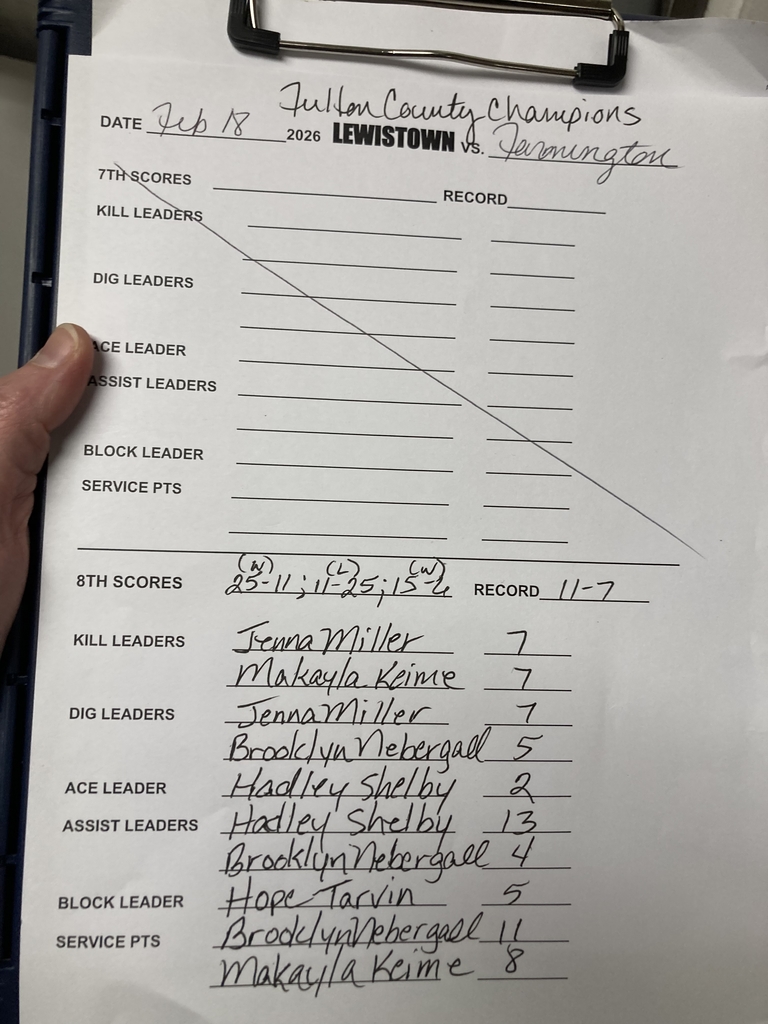 Fulton County Champions
DATE Feb 18 2026 LEWISTOWN VS. Farmington
7TH SCORES RECORD
KILL LEADERS
DIG LEADERS
ACE LEADER
ASSIST LEADERS
BLOCK LEADER
SERVICE PTS
(W) (L) (W)
8TH SCORES 25-11; 11-25; 15-6 RECORD 11-7
KILL LEADERS Jenna Miller 7
Makayla Keime 7
DIG LEADERS Jenna Miller 7
Brooklyn Nebergall 5
ACE LEADER Hadley Shelby 2
ASSIST LEADERS Hadley Shelby 13
Brooklyn Nebergall 4
BLOCK LEADER Hope Tarvin 5
SERVICE PTS Brooklyn Nebergall 11
Makayla Keime 8